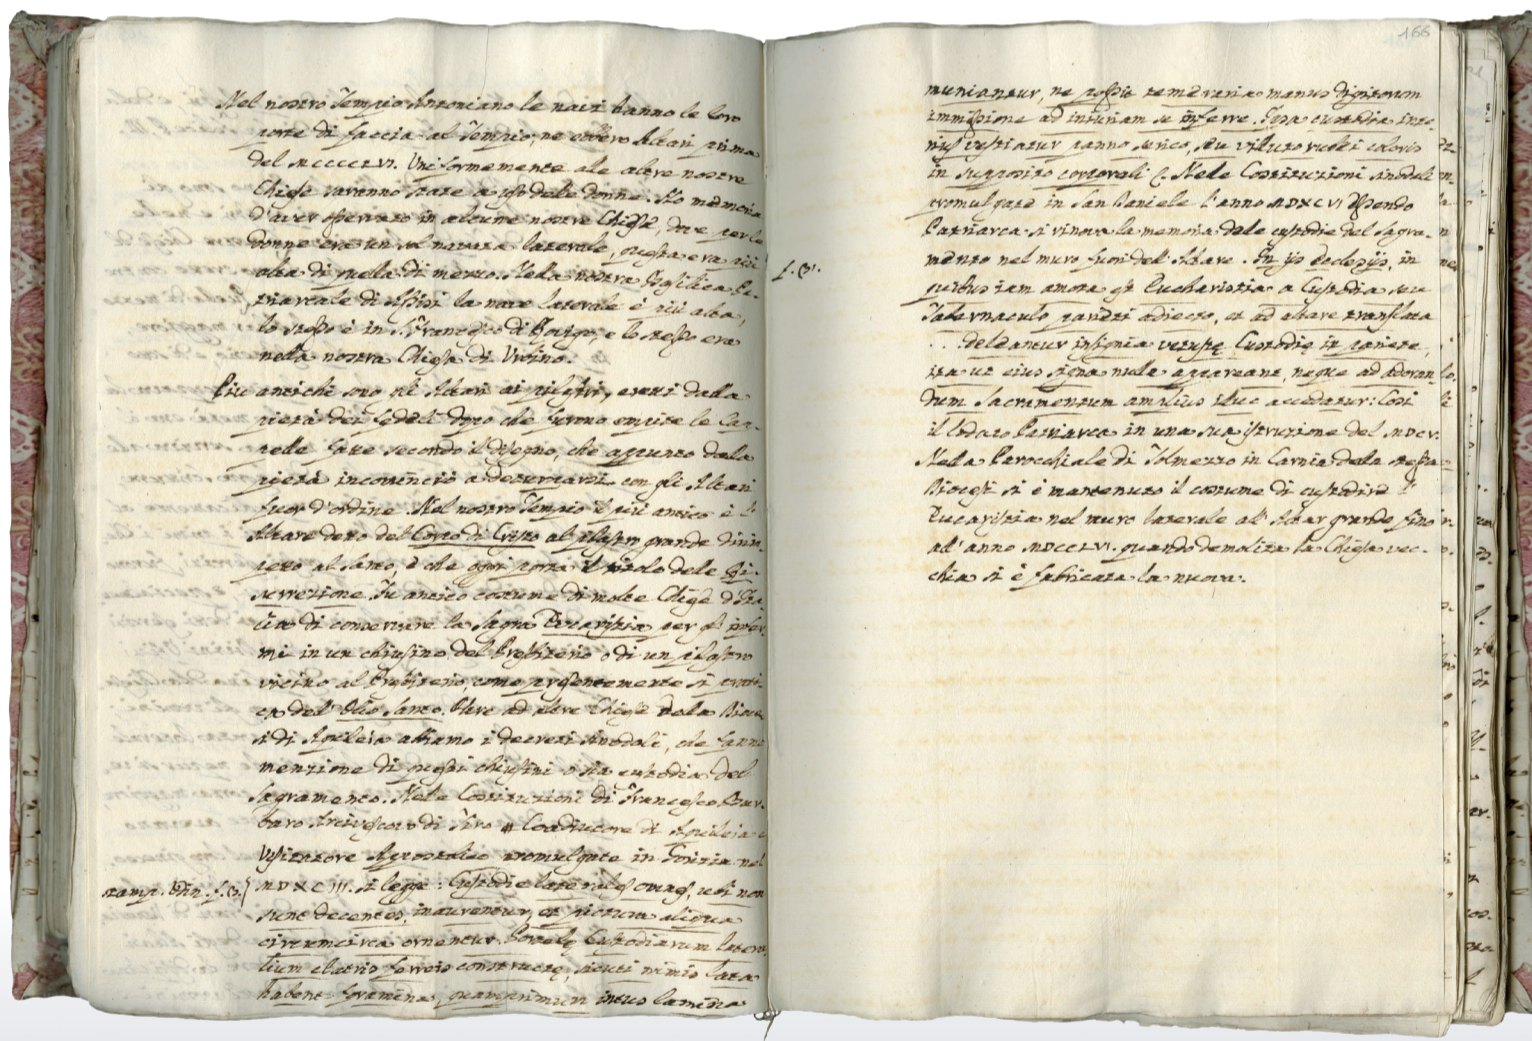 Nel nostro Tempio Antoniano le navi hanno le loro
porte di faccia al Tempio, ne ebbero Altari prima
del MCCCCLVI. Uniformemente alle altre nostre
Chiese saranno state a uso delle donne. Ho memoria
d'aver osservato in alcune nostre Chiese, dove per le
donne era un sol navata laterale, questa era più
alta di quella di mezzo. Nella nostra Basilica Pa-
triarcale di Assisi la nave laterale è più alta,
lo stesso è in S. Francesco di e lo stesso era
nella nostra Chiesa di Urbino.
Più antichi sono gli Altari ai pilastri, eretti dalla
pietà dei fedeli dopo che furono empite le Cap-
pelle fatte secondo il disegno, che appunto dala
pietà incominciò a deturparsi con gli Altari
fuor d'ordine. Nel nostro Tempio il più antico è l'
Altare detto del Corpo di Cristo al pilastro grande dirim-
peto al Santo, è che ogni porta il titolo dele Ri-
surrezione. Fu antico costume di molte Chiese d'Ita-
lia di conservare la Sagra Eucaristia per gl' infer-
mi in un chiusino del Presbiterio o di un pilastro
vicino al Presbiterio, come presentemente si prati-
ca del' Olio Santo. Oltre ad altre Chiese dela Dioce
si di Aquileia abbiamo i decreti sinodali, che fanno
menzione di questi chiusini o sia custodia del
Sagramento. Nele Costituzioni di Francesco Bar-
baro Arcivescovo di Tiro Coadiutore di Aquileia e
Visitatore Apostolico promulgate in Gorizia nel
stamp. Udin. f. 13. MDXCIII. si legge: Custodie laterales omnes, ubi non
sunt decentes, inaurentur, et pictura aliqua
circumcirca ornentur. Portelę Custodiarum latera
lium clatris ferreis constructę, sicuti nimis lata
habent foramina, quamprimum intus lamina
166
muniantur, ne possit temeraria manus digitorum
immissione ad iniuriam se inferre. Ipsa custodia inte-
rius vestiatur panno serico, seu villuto rubei coloris
in supposito corporali &c. Nele Costituzioni sinodali
promulgate in San Daniele l'anno MDXCVI essendo
Patriarca si rinova la memoria dale custodie del Sagra-
f. 31. mento nel muro fuori dell'Altare. In ijs Ecclesijs, in
quibus iam amota est Eucharistia a Custodia seu
Tabernaculo parieti adiecto, et ad altare translata
. . . deleantur insignia vetustę Custodię in pariete,
ita ut eius signa nulla appareant, neque ad adoran-
dum Sacramentum amplius illuc accedatur: Così
il lodato Patriarca in una sua istruzione del MDCV.
Nella Parocchiale di Tolmezzo in Carnia dela stessa
Diocesi si è mantenuto il costume di custodire l'
Eucaristia nel muro laterale al' Altar grande fino
all'anno MDCCLVI. quando demolita la Chiesa vec-
chia si è fabricata la nuova.